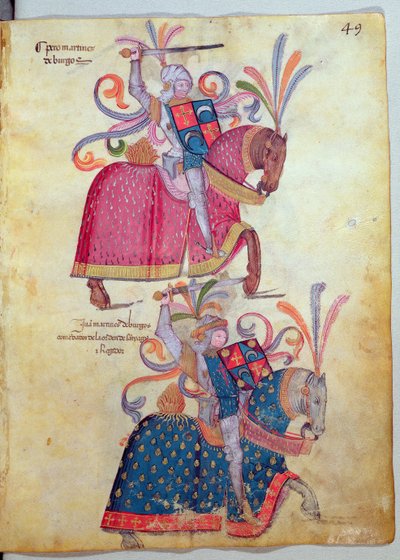 49
pero martines
de burgos
Juā martines de burgos
comēdador de la orden de santiago
i Regidor